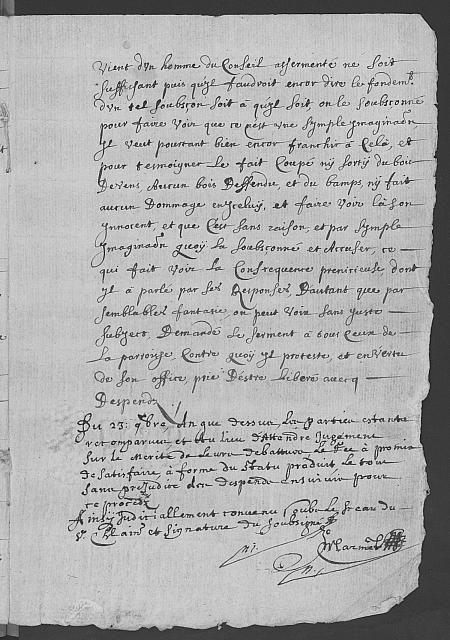 vient d'un homme du Conseil assermenté ne soit
suffisant puis qu'yl faudroit encor dire le fondem.t
d'un tel soubson soit a qu'yl soit on le soubsconne
pour faire voir que ce n'est une symple ymaginaõn
yl veut pourtant bien encor franchir a Cela, et
pour tesmoigner le fait Coupé ny sorty du bois
Devens, Aucun bois Deffendu, et du bamps, ny fait
aucun Dommage en yceluy, et faire voir là son
innocent, et que C'est sans raison, et par symple
ymaginaõn quoy la soubsconné et Accuser, ce
qui fait voir la Consequence pernitieuse, dont
yl a parlé par ses Responses, D'autant que par
semblables fantasie, on peut voir sans juste
subject, Demandé le serment a tous Ceux de
la paroisse, Contre quoy yl proteste, et en Vertu
de son office, prie D'estre libéré avecq
Despends
Du 23: 9bre An que dessus, les parties estants
recomparues et au lieu d'Attendre Jugement
sur le Merite de leurs debattus, le a promis
de satisfaire, a forme du statu produit, le tout
sans prejudice des despends ensuivir pour
ce procedé
Ainsy Judiciallement convenu soubs le sceau du
Sr Chlain et signature du soubsigné
Marmet